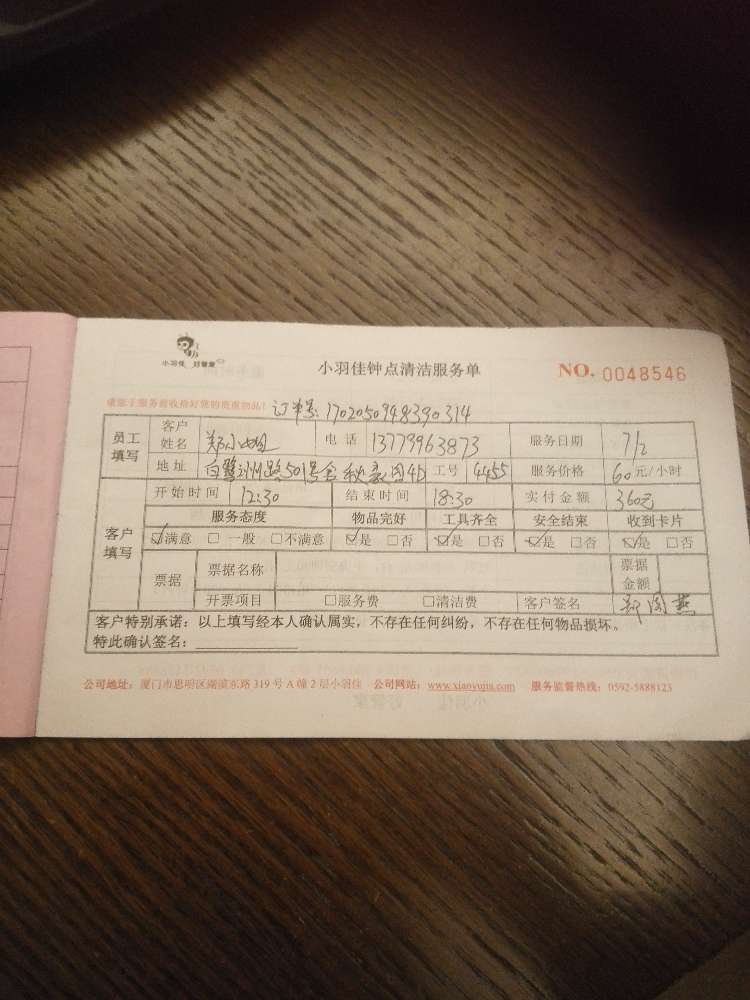 小羽佳 好管家
小羽佳钟点清洁服务单
NO. 0048546
请您于服务前收拾好您的贵重物品!
订单号: 1702050948390314
员工填写
客户姓名 郑小姐 电话 13779963873 服务日期 7/2
地址 白鹭洲路501号 4D 工号 4455 服务价格 60元/小时
客户填写
开始时间 12:30 结束时间 18:30 实付金额 360元
服务态度 物品完好 工具齐全 安全结束 收到卡片
☑满意 □一般 □不满意 ☑是 □否 ☑是 □否 ☑是 □否 ☑是 □否
票据 票据名称 票据金额
开票项目 □服务费 □清洁费 客户签名 郑国燕
客户特别承诺:以上填写经本人确认属实,不存在任何纠纷,不存在任何物品损坏。
特此确认签名:
公司地址:厦门市思明区湖滨东路 319 号 A 幢 2 层小羽佳 公司网站:www.xiaoyujia.com 服务监督热线:0592-5888123